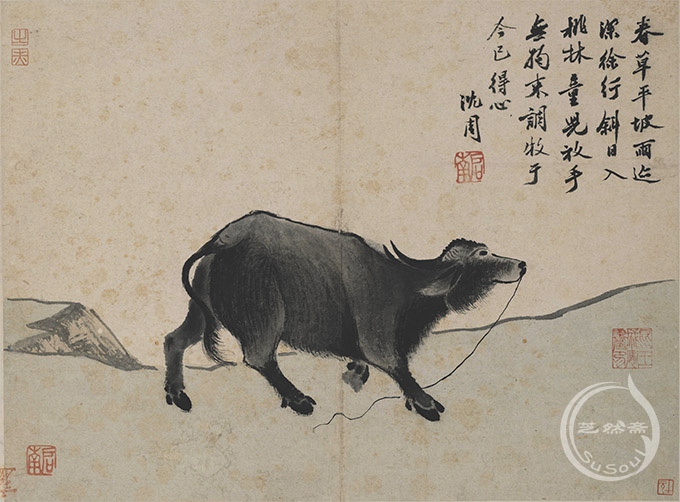 春草平坡雨迹
深徐行斜日入
桃林童兒放手
無拘束調牧于
今已得心
沈周
启南
启南
芝然斋
SuSoul